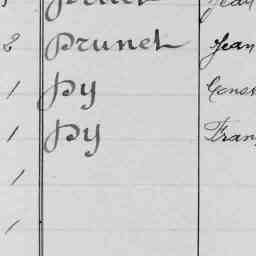 2 Prunet Jean
1 Py Const
1 Py Fran
1
1